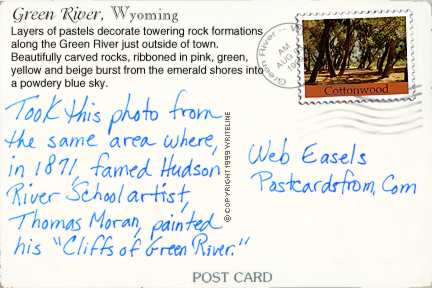 Green River, Wyoming
Layers of pastels decorate towering rock formations
along the Green River just outside of town.
Beautifully carved rocks, ribboned in pink, green,
yellow and beige burst from the emerald shores into
a powdery blue sky.
Took this photo from
the same area where,
in 1871, famed Hudson
River School artist,
Thomas Moran, painted
his "Cliffs of Green River."
© COPYRIGHT 1999 WRITELINE
Green River
AM
AUG
Cottonwood
Web Easels
Postcardsfrom.Com
POST CARD